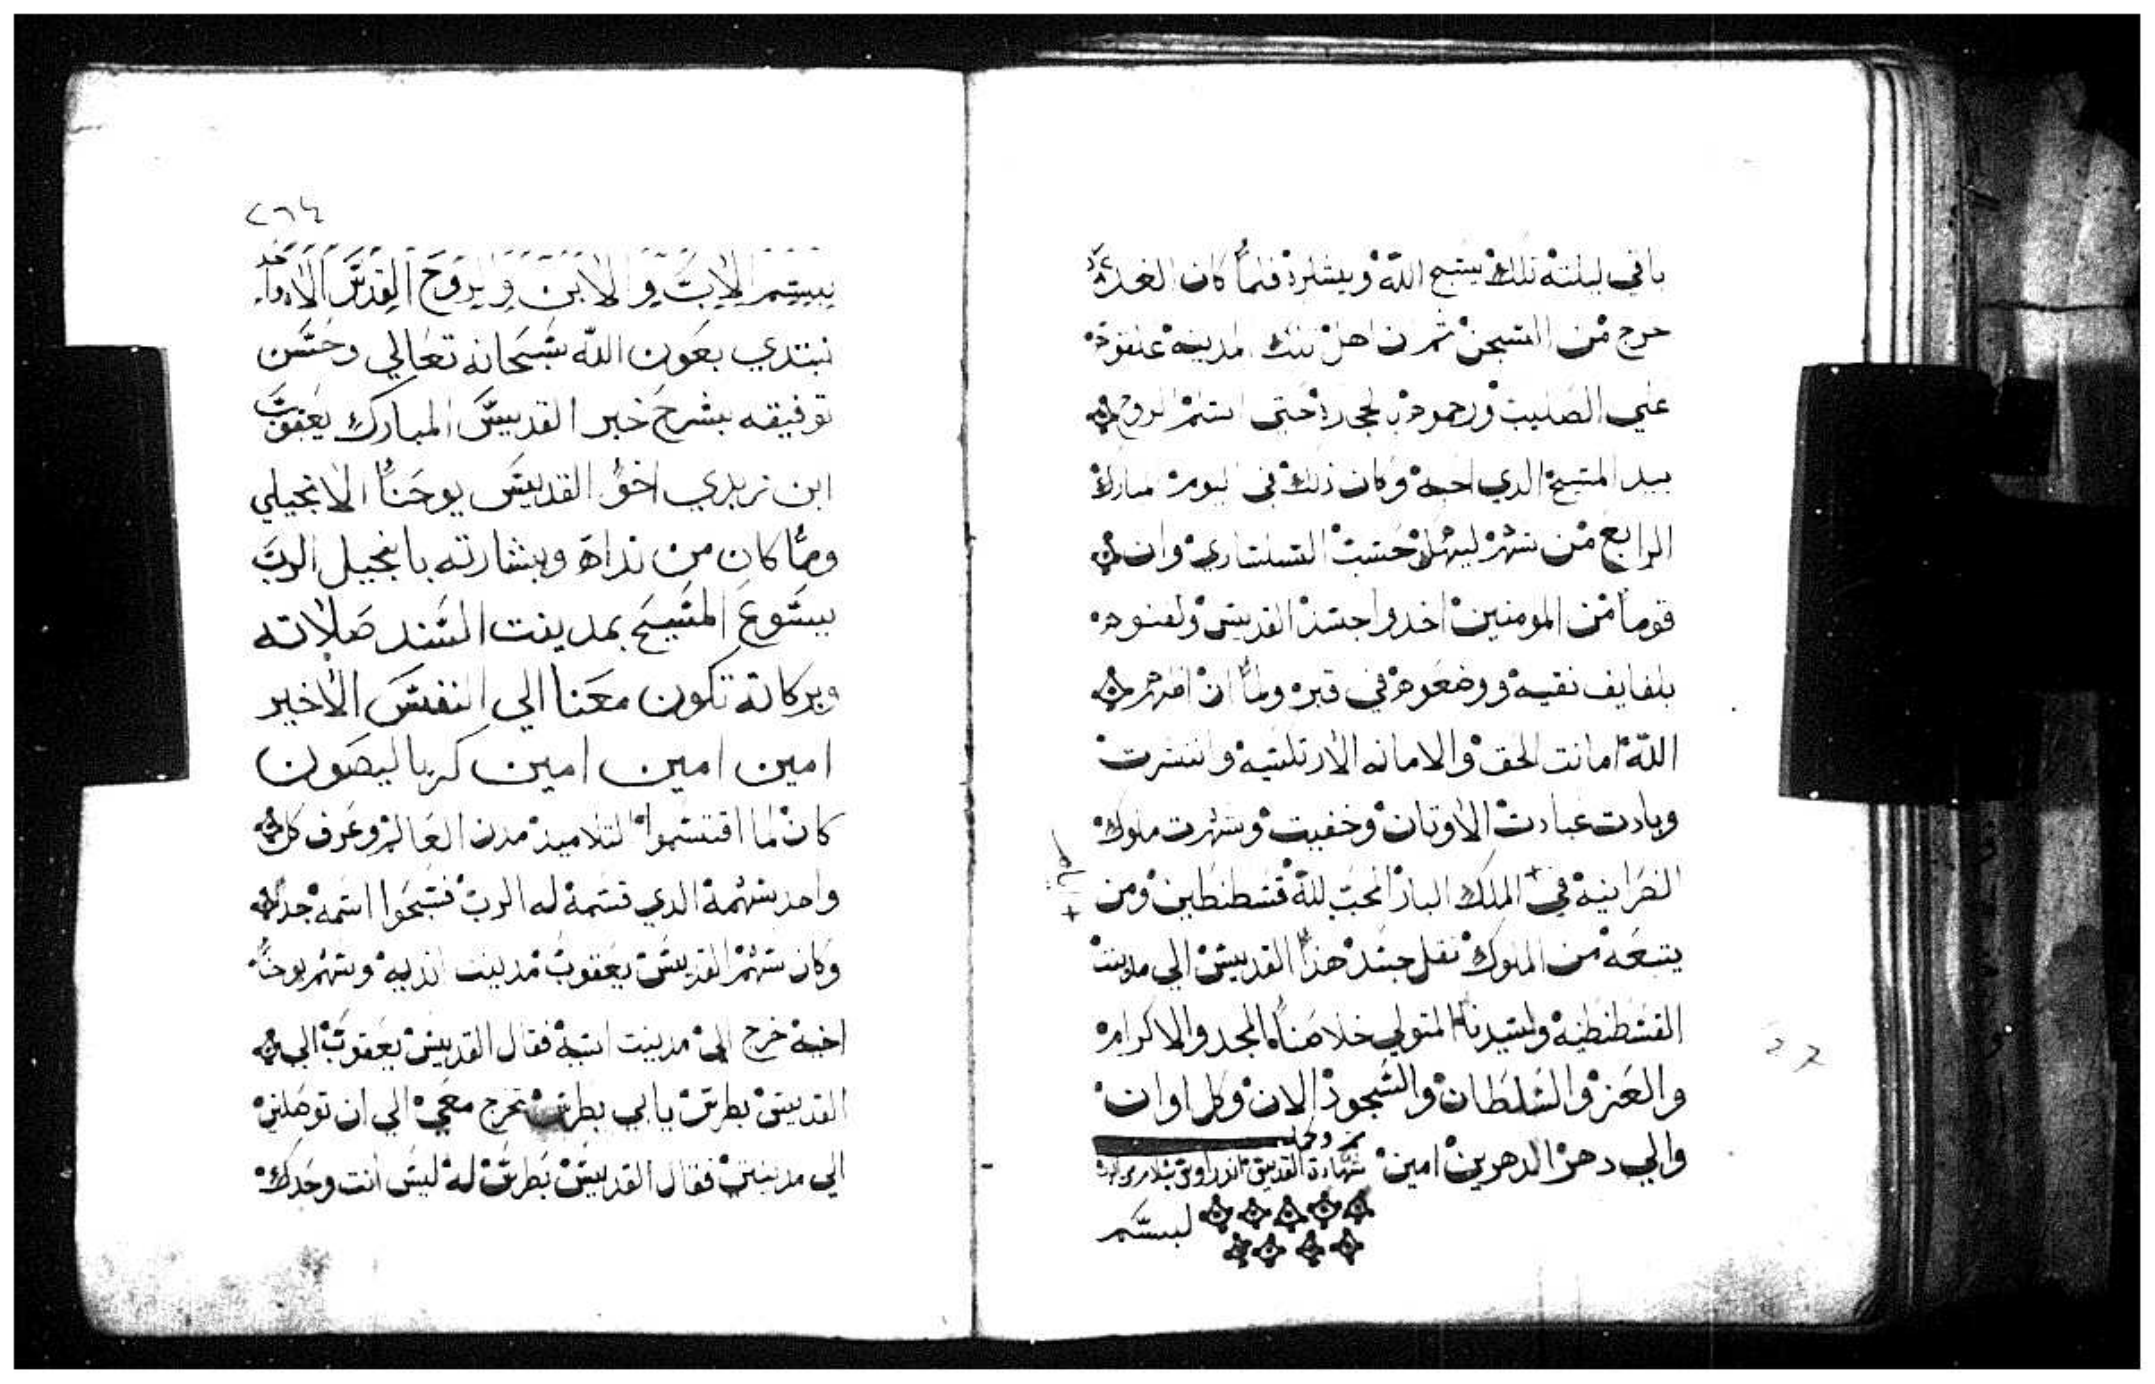 باقي ليلته تلك يسبح الله ويشكره فلما كان الغد
خرج من السجن ثم ان اهل تلك المدينه علقوه
علي الصليب ورجموه بالحجاره حتي اسلم الروح
بيد المسيح الدي احبه وكان ذلك في اليوم المبارك
الرابع من شهر حسب وان
قوما من المومنين اخدوا جسد القديس ولفنوه
بلفايف نقيه ووضعوه في قبره ولما ان اظهر
الله امانت الحق والامانه الارتدكسيه وانتشرت
وبادت عبادت الاوتان وخفيت وشهرت ملوك
النصرانيه في الملك البار المحب لله قسطنطين ومن
يتبعه من الملوك نقل جسد هذا القديس الي مدينت
القسطنطنيه ولسيدنا المتولي خلاصنا المجد والاكرام
والعز والسلطان والسجود الان وكل اوان
والي دهر الدهرين امين تمت وكملت
شهادة القديس اندراوس بسلام من الرب
لبسم
٢٦٤
بسم الاب والابن والروح القدس الاله الواحد
نبتدي بعون الله سبحانه تعالي وحسن
توفيقه بشرح خبر القديس المبارك يعقوب
ابن زبدي اخو القديس يوحنا الانجيلي
وما كان من نداه وبشارته بانجيل الرب
يسوع المسيح بمدينت السند صلاته
وبركاته تكون معنا الي النفس الاخير
امين امين امين كرياليصون
كان لما اقتسموا التلاميذ مدن العالم وعرف كل
واحد سهمه الدي قسمه له الرب فسبحوا اسمه جدا
وكان سهم القديس يعقوب مدينت انديه وسهم يوحنا
اخيه خرج الي مدينت اسيه فقال القديس يعقوب الي
القديس بطرس يا ابي بطرس تخرج معي الي ان توصلني
الي مدينتي فقال القديس بطرس له ليس انت وحدك